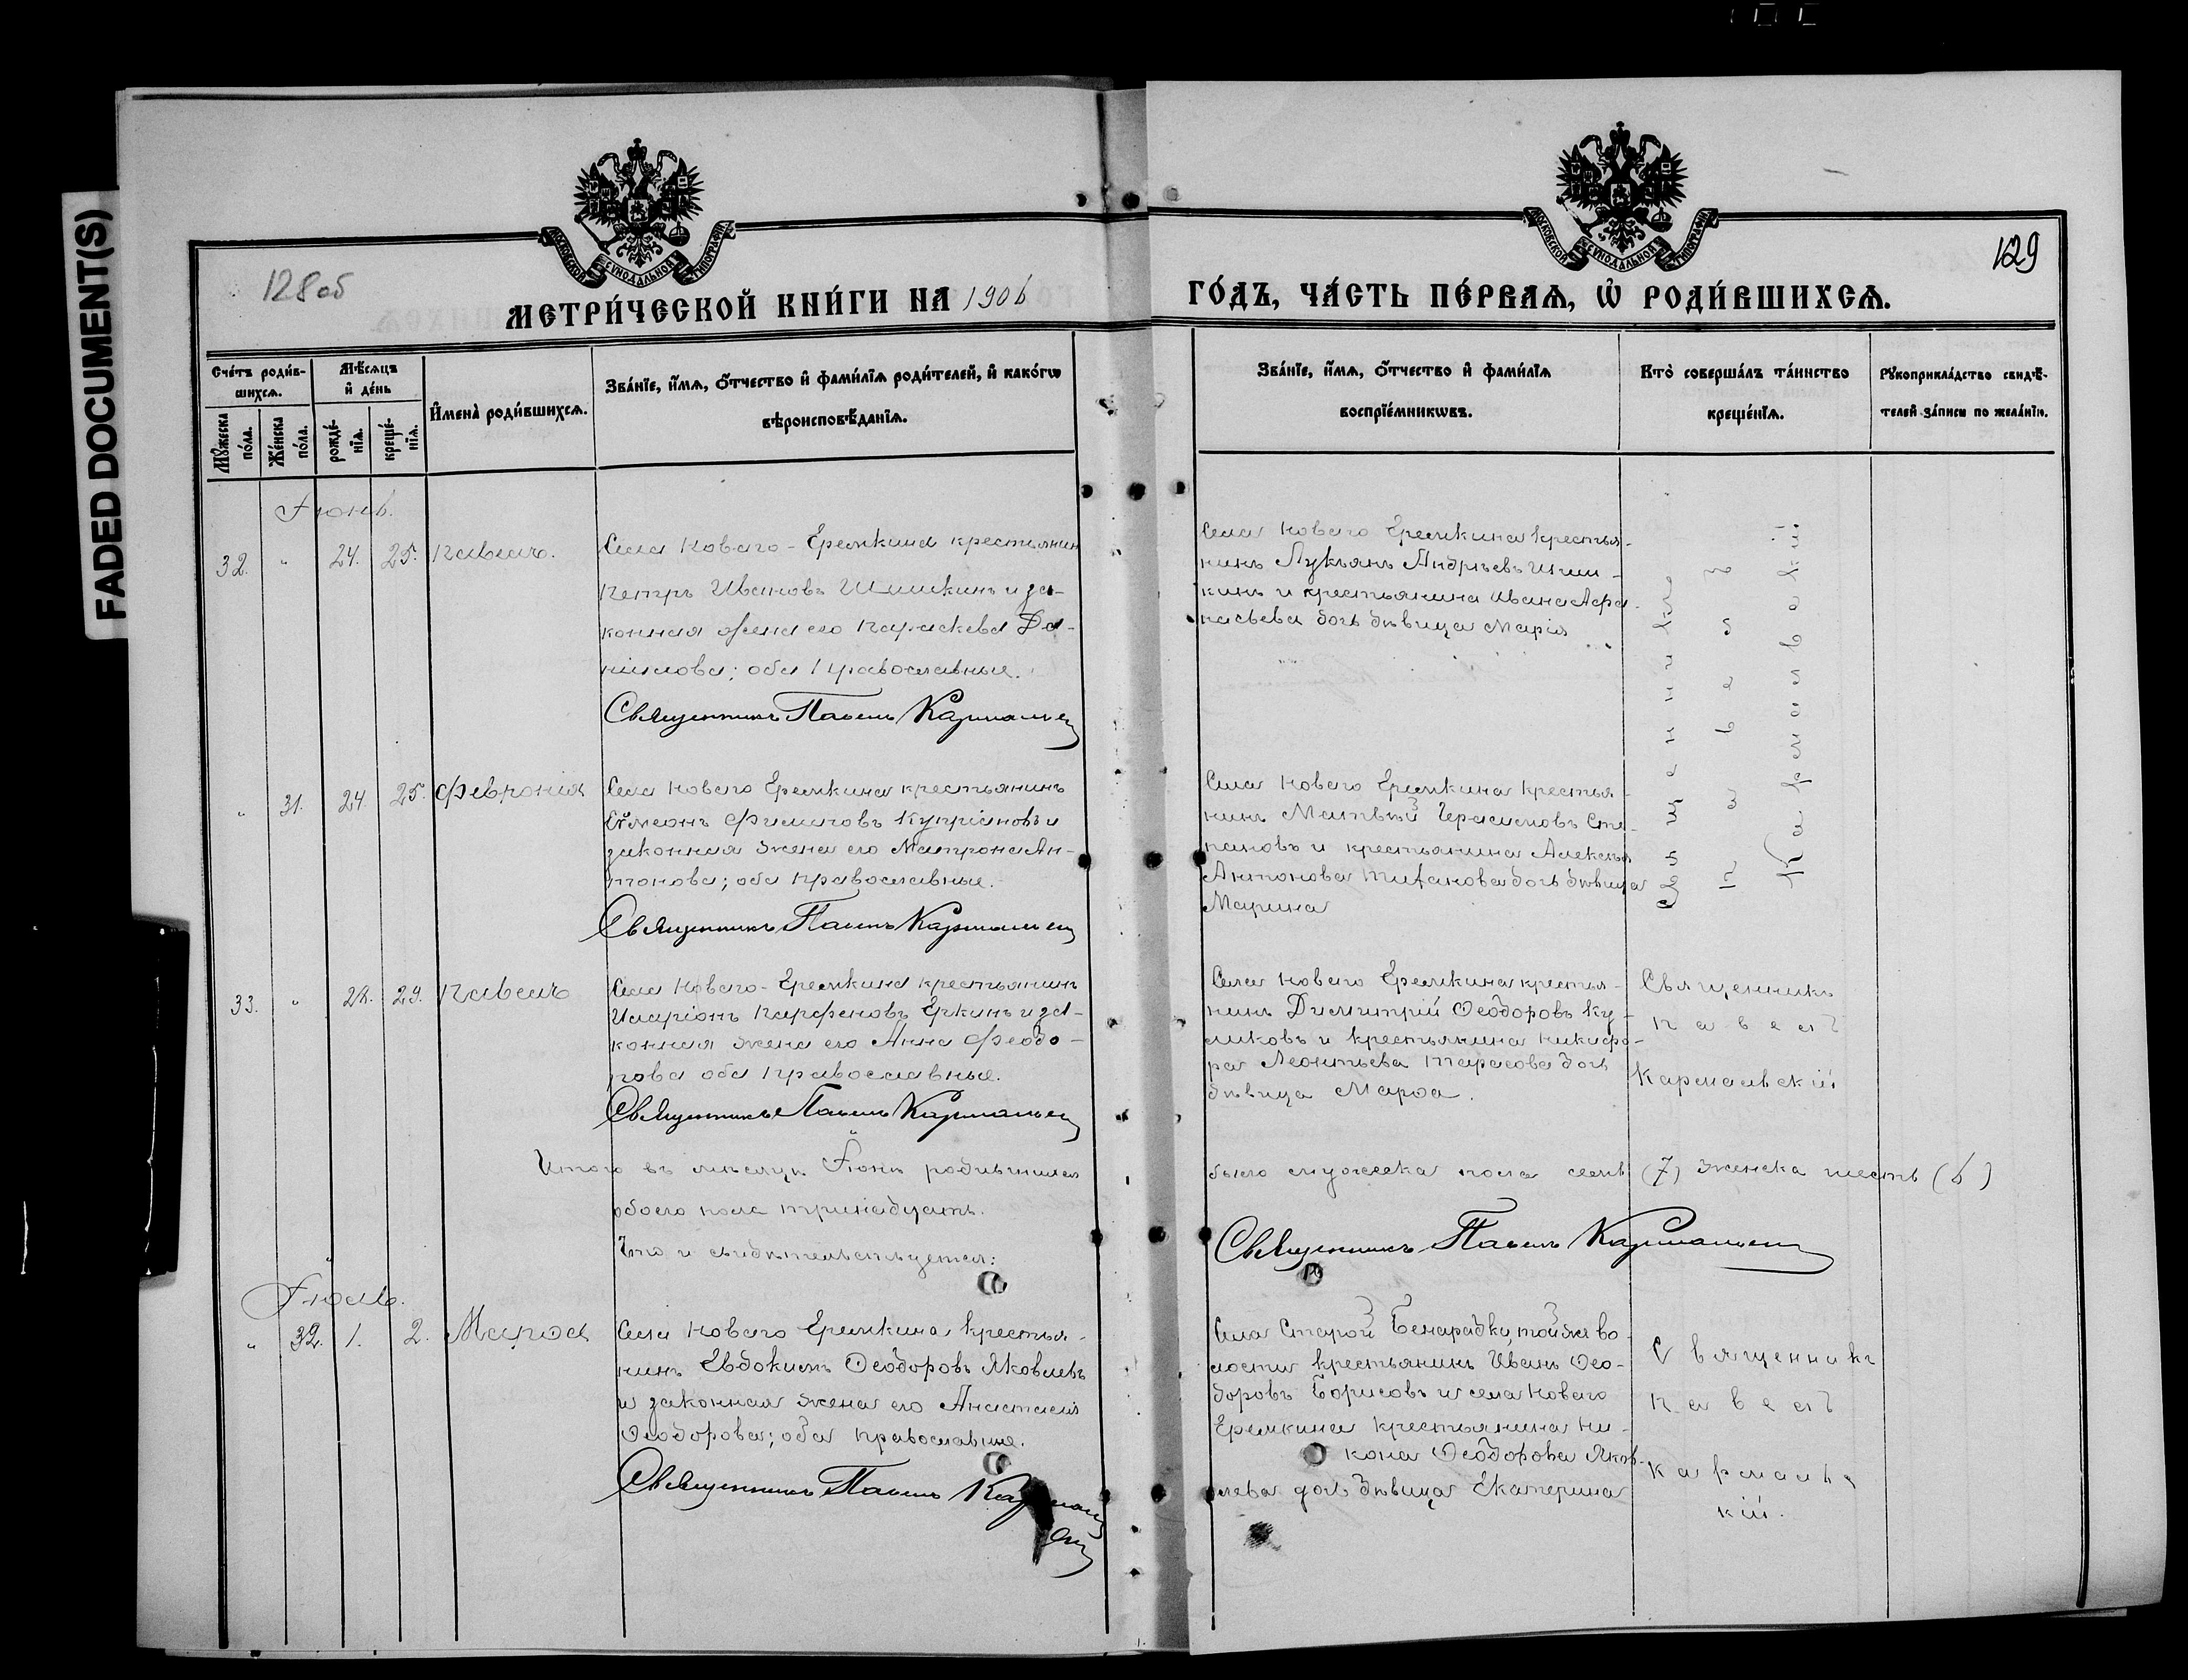 FADED DOCUMENT(S)
128об
129
МОСКОВСКОЙ СѴНОДАЛЬНОЙ ТИПОГРАФІИ
МОСКОВСКОЙ СѴНОДАЛЬНОЙ ТИПОГРАФІИ
МЕТРИ́ЧЕСКОЙ КНИ́ГИ НА 1906
ГО́ДЪ, ЧА́СТЬ ПЕ́РВАѦ, Ѡ҆ РОДИ́ВШИХСѦ.
Сче́тъ роди́в-
шихсѧ.
Мꙋ́жеска
по́ла.
Же́нска
по́ла.
Мѣ́сѧцъ
и҆ де́нь
рожде́-
нїѧ.
креще́-
нїѧ.
И҆мена̀ роди́вшихсѧ.
Зва́нїе, и҆́мѧ, ѻ҆́тчество и҆ фами́лїѧ роди́телей, и҆ како́гѡ
вѣроисповѣ́данїѧ.
Зва́нїе, и҆́мѧ, ѻ҆́тчество и҆ фами́лїѧ
воспрїе́мникѡвъ.
Кто̀ соверша́лъ та́инство
креще́нїѧ.
Рꙋкоприкла́дство свидѣ́-
телей за́писи по жела́нїю.
Іюнь.
32. " 24. 25. Павелъ.
Села Новаго-Еремкина крестьянин
Петръ Ивановъ Шишкинъ и за-
конная жена его Параскева Да-
ниилова; оба православные.
Священникъ Павелъ Кармальск
Села Новаго Еремкина крестья-
нинъ Лукьянъ Андреевъ Шиш-
кинъ и крестьянина Ивана Афа-
насьева дочь дѣвица Марія
Священникъ
Павелъ
Кармальскій
" 31. 24. 25. Феврония
Села Новаго Еремкина крестьянинъ
Сѵмеонъ Филиповъ Купріановъ и
законная жена его Матрона Ан-
тонова; оба православные.
Священникъ Павелъ Кармальск
Села Новаго Еремкина крестья-
нинъ Матвѣй Герасимовъ Сте-
пановъ и крестьянина Алексѣя
Антонова дочь дѣвица
Марина
33. " 28. 29. Павелъ
Села Новаго-Еремкина крестьянинъ
Иларіонъ Парфеновъ Еркинъ и за-
конная жена его Анна Феодо-
рова оба православные.
Священникъ Павелъ Кармальск
Села Новаго Еремкина крестья-
нинъ Димитрій Ѳеодоровъ Ку-
ликовъ и крестьянина Никифо-
ра Леонтьева Тарасова дочь
дѣвица Марѳа.
Священникъ
Павелъ
Кармальскій
Итого въ мѣсяцѣ Іюнѣ родившихся
было мужеска пола семь (7) женска шесть (6)
обоего пола тринадцать.
Что и свидѣтельствуется:
Священникъ Павелъ Кармальск
Іюль.
" 32. 1. 2. Марѳа
Села Новаго Еремкина крестья-
нинъ Евдокимъ Ѳеодоровъ Яковлевъ
и законная жена его Анастасія
Ѳеодорова; оба православные.
Священникъ Павелъ Кармаль
Села Старой Бинарадки, той же во-
лости крестьянинъ Иванъ Ѳео-
доровъ Борисовъ и села Новаго
Еремкина крестьянина Ни-
кона Ѳеодорова Яков-
лева дочь дѣвица Екатерина
Священникъ
Павелъ
Кармальс
кій.